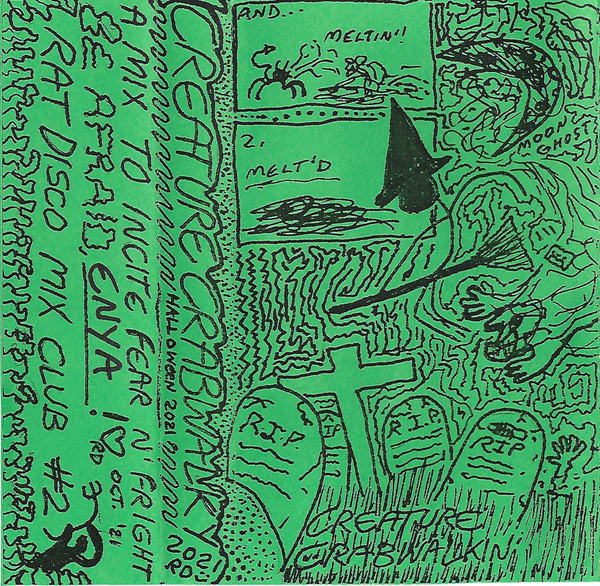 CREATURE CRABWALKY
2021
RD
HALLOWEEN 2021
A MIX TO INCITE FEAR N' FRIGHT
BE AFRAID ENYA! ♡ RD OCT. '21
RAT DISCO MIX CLUB #2
AND...
MELTIN'!
2.
MELT'D
MOON
GHOST
RIP
RIP
RIP
CREATURE
CRABWALKIN